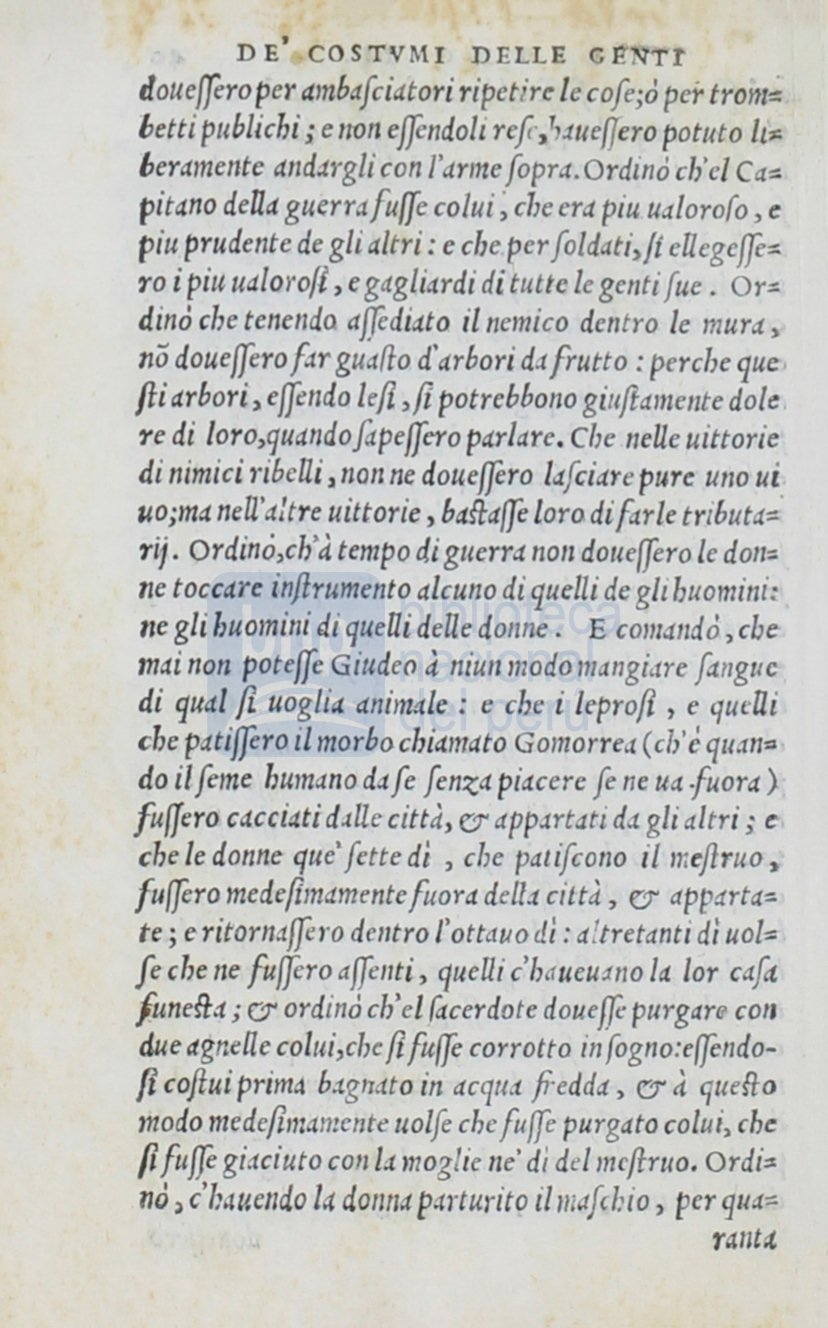 DE' COSTVMI DELLE GENTI
doueſſero per ambaſciatori ripetire le coſe;ò per trom=
betti publichi ; e non eſſendoli reſe, haueſſero potuto li=
beramente andargli con l'arme ſopra. Ordinò ch'el Ca=
pitano della guerra fuſſe colui , che era piu ualoroſo , e
piu prudente de gli altri : e che per ſoldati, ſi ellegeſſe=
ro i piu ualoroſi , e gagliardi di tutte le genti ſue . Or=
dinò che tenendo aſſediato il nemico dentro le mura ,
nō doueſſero far guaſto d'arbori da frutto : perche que
ſti arbori , eſſendo leſi , ſi potrebbono giuſtamente dole
re di loro,quando ſapeſſero parlare. Che nelle uittorie
di nimici ribelli , non ne doueſſero laſciare pure uno ui
uo;ma nell'altre uittorie , baſtaſſe loro di farle tributa=
rij . Ordinò,ch'à tempo di guerra non doueſſero le don=
ne toccare inſtrumento alcuno di quelli de gli huomini:
ne gli huomini di quelli delle donne . E comandò , che
mai non poteſſe Giudeo à niun modo mangiare ſangue
di qual ſi uoglia animale : e che i leproſi , e quelli
che patiſſero il morbo chiamato Gomorrea (ch'è quan=
do il ſeme humano da ſe ſenza piacere ſe ne ua fuora )
fuſſero cacciati dalle città, & appartati da gli altri ; e
che le donne que' ſette dì , che patiſcono il meſtruo ,
fuſſero medeſimamente fuora della città , & apparta=
te ; e ritornaſſero dentro l'ottauo dì : altretanti dì uol=
ſe che ne fuſſero aſſenti , quelli c'haueuano la lor caſa
funeſta ; & ordinò ch'el ſacerdote doueſſe purgare con
due agnelle colui,che ſi fuſſe corrotto in ſogno:eſſendo-
ſi coſtui prima bagnato in acqua fredda , & à queſto
modo medeſimamente uolſe che fuſſe purgato colui, che
ſi fuſſe giaciuto con la moglie ne' dì del meſtruo. Ordi=
nò , c'hauendo la donna parturito il maſchio , per qua=
ranta
biblioteca
nacional
del perú